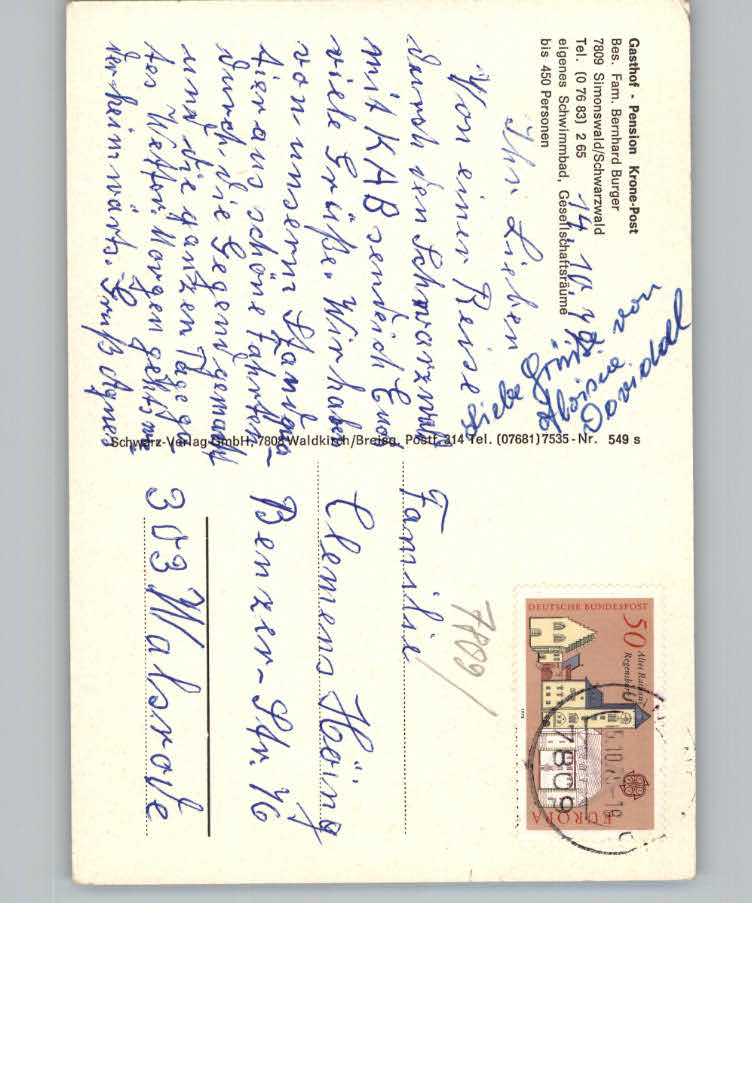 Gasthof - Pension Krone-Post
Bes. Fam. Bernhard Burger
7809 Simonswald/Schwarzwald
Tel. (0 76 83) 2 65
eigenes Schwimmbad, Gesellschaftsräume
bis 450 Personen
14.10.
Ihr Lieben
Von einer Reise
durch den Schwarzwald
mit KAB sende ich Euch
viele Grüße. Wir haben
von unserm
aus schöne Fahrten
durch die Gegend gemacht
und die ganzen Tage gu-
tes Wetter. Morgen geht's wie-
der heimwärts. Gruß Agnes
Liebe Grüße
von
Schwarz-Verlag GmbH, 7808 Waldkirch/Breisg. Postf. 314 Tel. (07681) 7535 - Nr. 549 s
Familie
Clemens Höing
Benzer-Str. 46
303 Walsrode
7809/
DEUTSCHE BUNDESPOST
50
Altes Rathaus
Regensburg
EUROPA
1978
7809